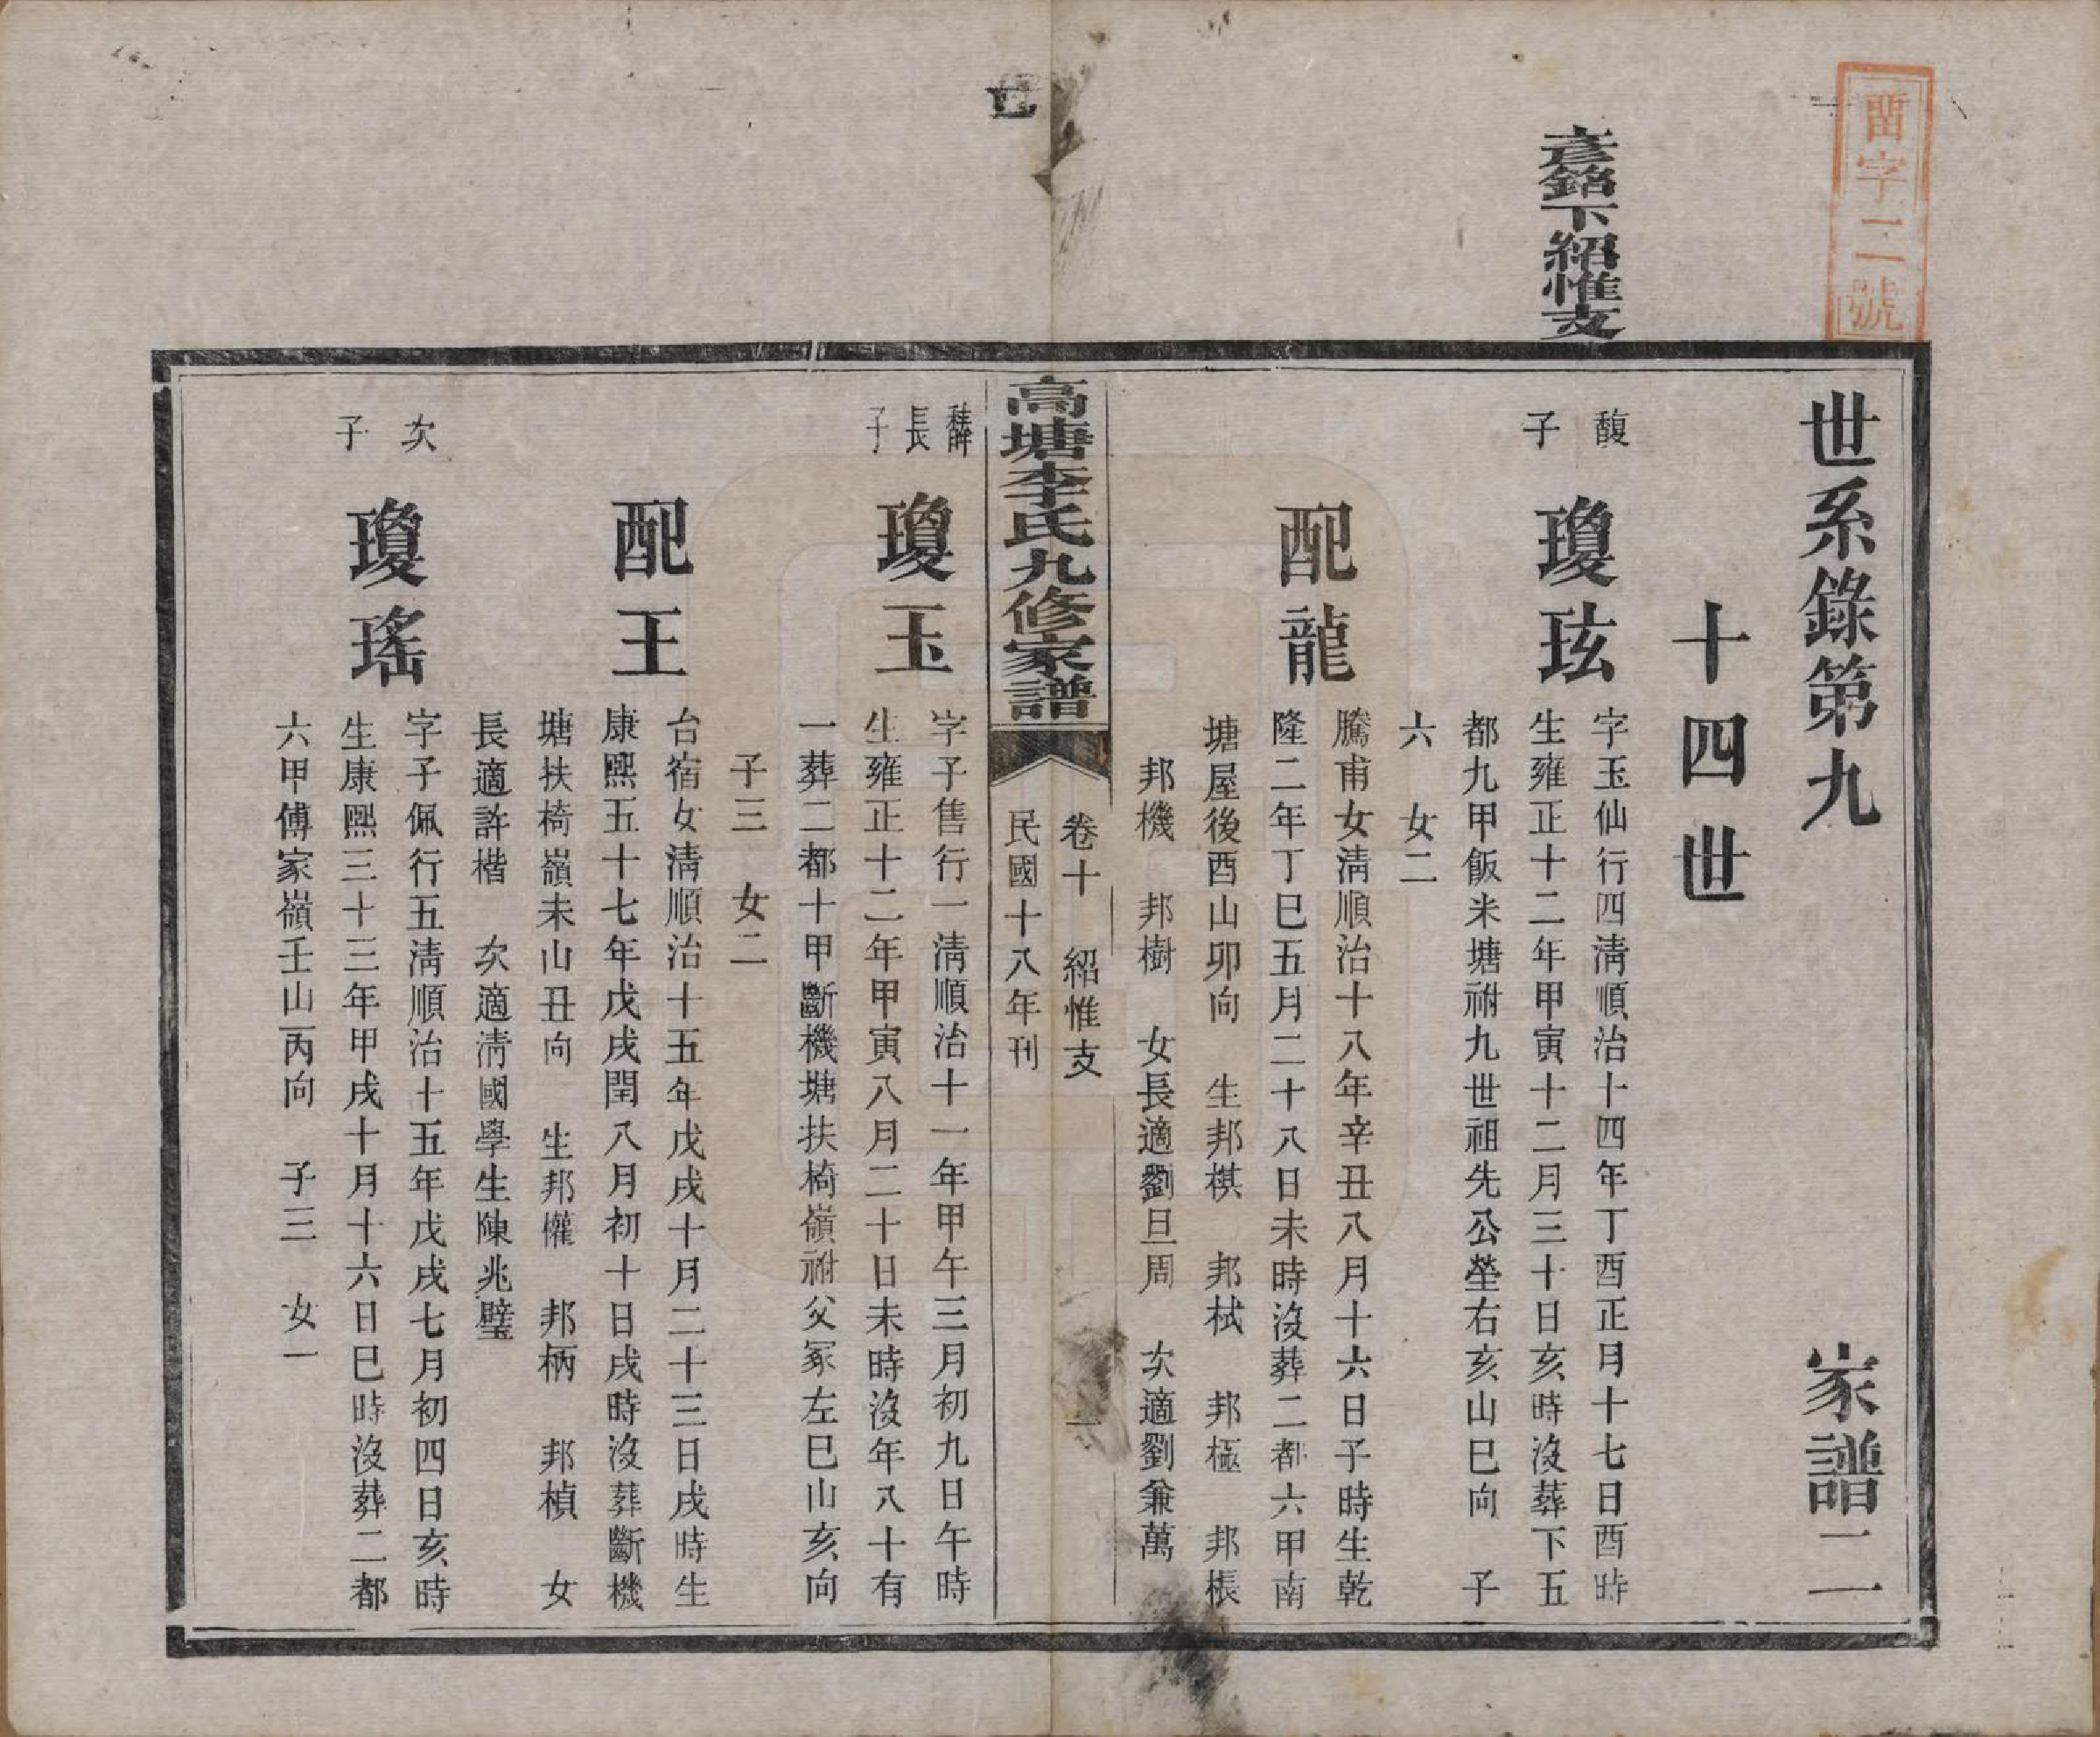 字二號
彥銘下紹惟支
世系錄第九
家譜二
十四世
馥子
瓊玹
字玉仙行四淸順治十四年丁酉正月十七日酉時
生雍正十二年甲寅十二月三十日亥時沒葬下五
都九甲飯米塘祔九世祖先公塋右亥山巳向 子
六 女二
配龍
騰甫女淸順治十八年辛丑八月十六日子時生乾
隆二年丁巳五月二十八日未時沒葬二都六甲南
塘屋後酉山卯向 生邦棋 邦栻 邦極 邦棖
邦機 邦樹 女長適劉旦周 次適劉兼萬
高塘李氏九修家譜
卷十 紹惟支 一
民國十八年刊
長子
瓊玉
字子售行一淸順治十一年甲午三月初九日午時
生雍正十二年甲寅八月二十日未時沒年八十有
一葬二都十甲斷機塘扶椅嶺祔父冢左巳山亥向
子三 女二
配王
台宿女淸順治十五年戊戌十月二十三日戌時生
康熙五十七年戊戌閏八月初十日戌時沒葬斷機
塘扶椅嶺未山丑向 生邦欋 邦柄 邦楨 女
長適許楷 次適淸國學生陳兆璧
次子
瓊瑤
字子佩行五淸順治十五年戊戌七月初四日亥時
生康熙三十三年甲戌十月十六日巳時沒葬二都
六甲傅家嶺壬山丙向 子三 女一